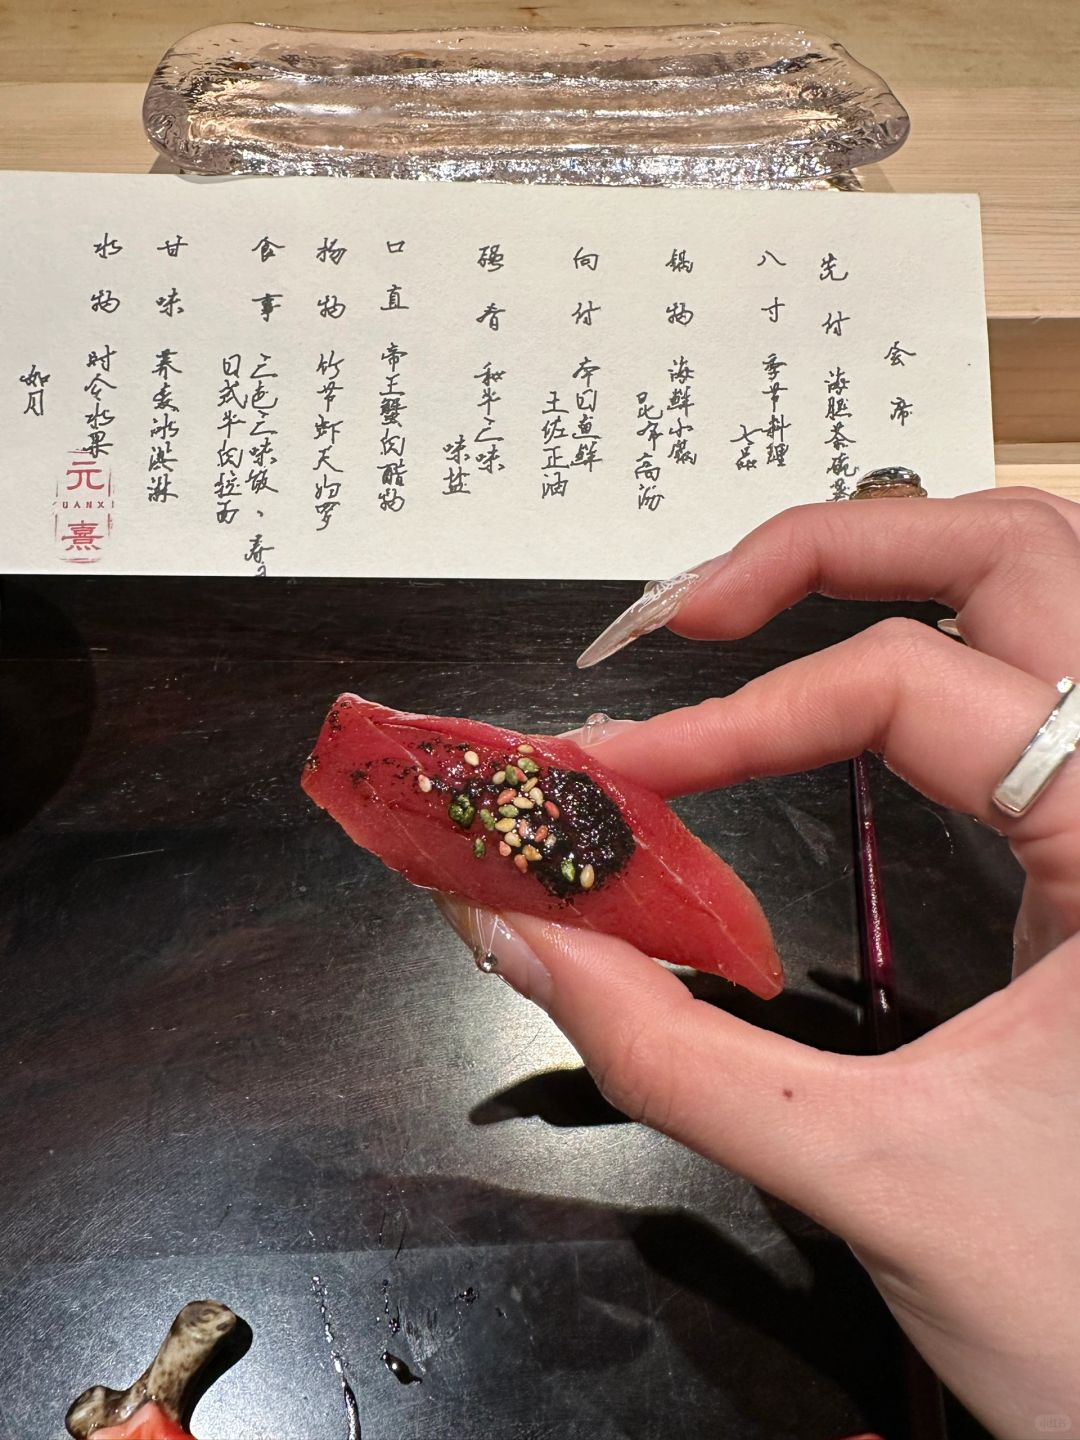 会席
先付 海胆茶碗蒸
八寸 季节料理
七品
锅物 海鲜小锅
昆布高汤
向付 本日鱼鲜
王佐正油
强肴 和牛三味
味盐
口直 帝王蟹肉醋物
扬物 竹节虾天妇罗
食事 三色三味饭、寿
日式牛肉拉面
甘味 荞麦冰淇淋
水物 时令水果
如月
元
UANX
熹
小红书